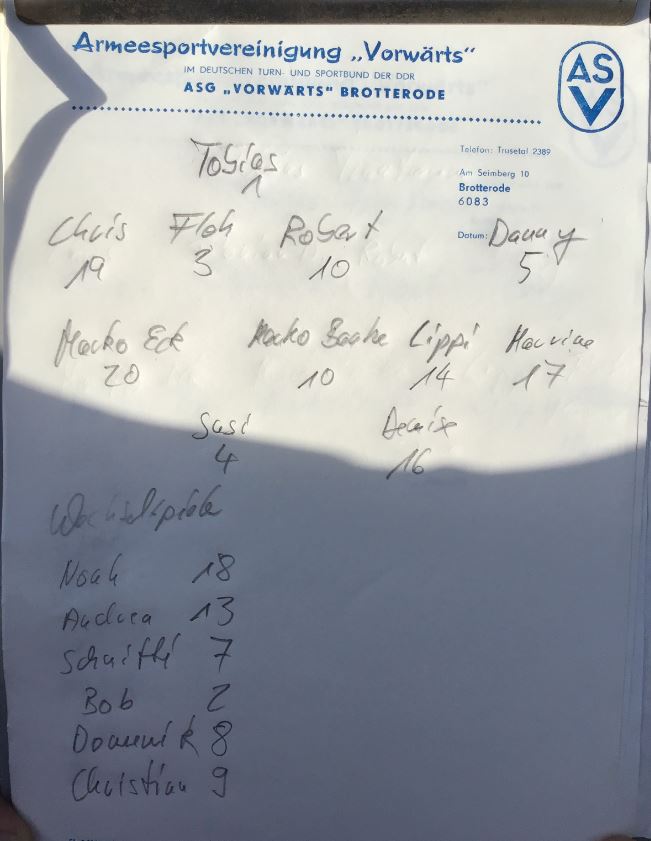 Armeesportvereinigung „Vorwärts"
IM DEUTSCHEN TURN- UND SPORTBUND DER DDR
ASG „VORWÄRTS" BROTTERODE
ASV
Telefon: Trusetal 2389
Am Seimberg 10
Brotterode
6083
Datum:
Tobias
1
Chris Floh Robert Danny
19 3 10 5
Marko Eck Marko Lippi
20 10 14 17
Susi Denise
4 16
Wechselspieler
Noah 18
Andrea 13
7
Bob 2
Dominik 8
Christian 9